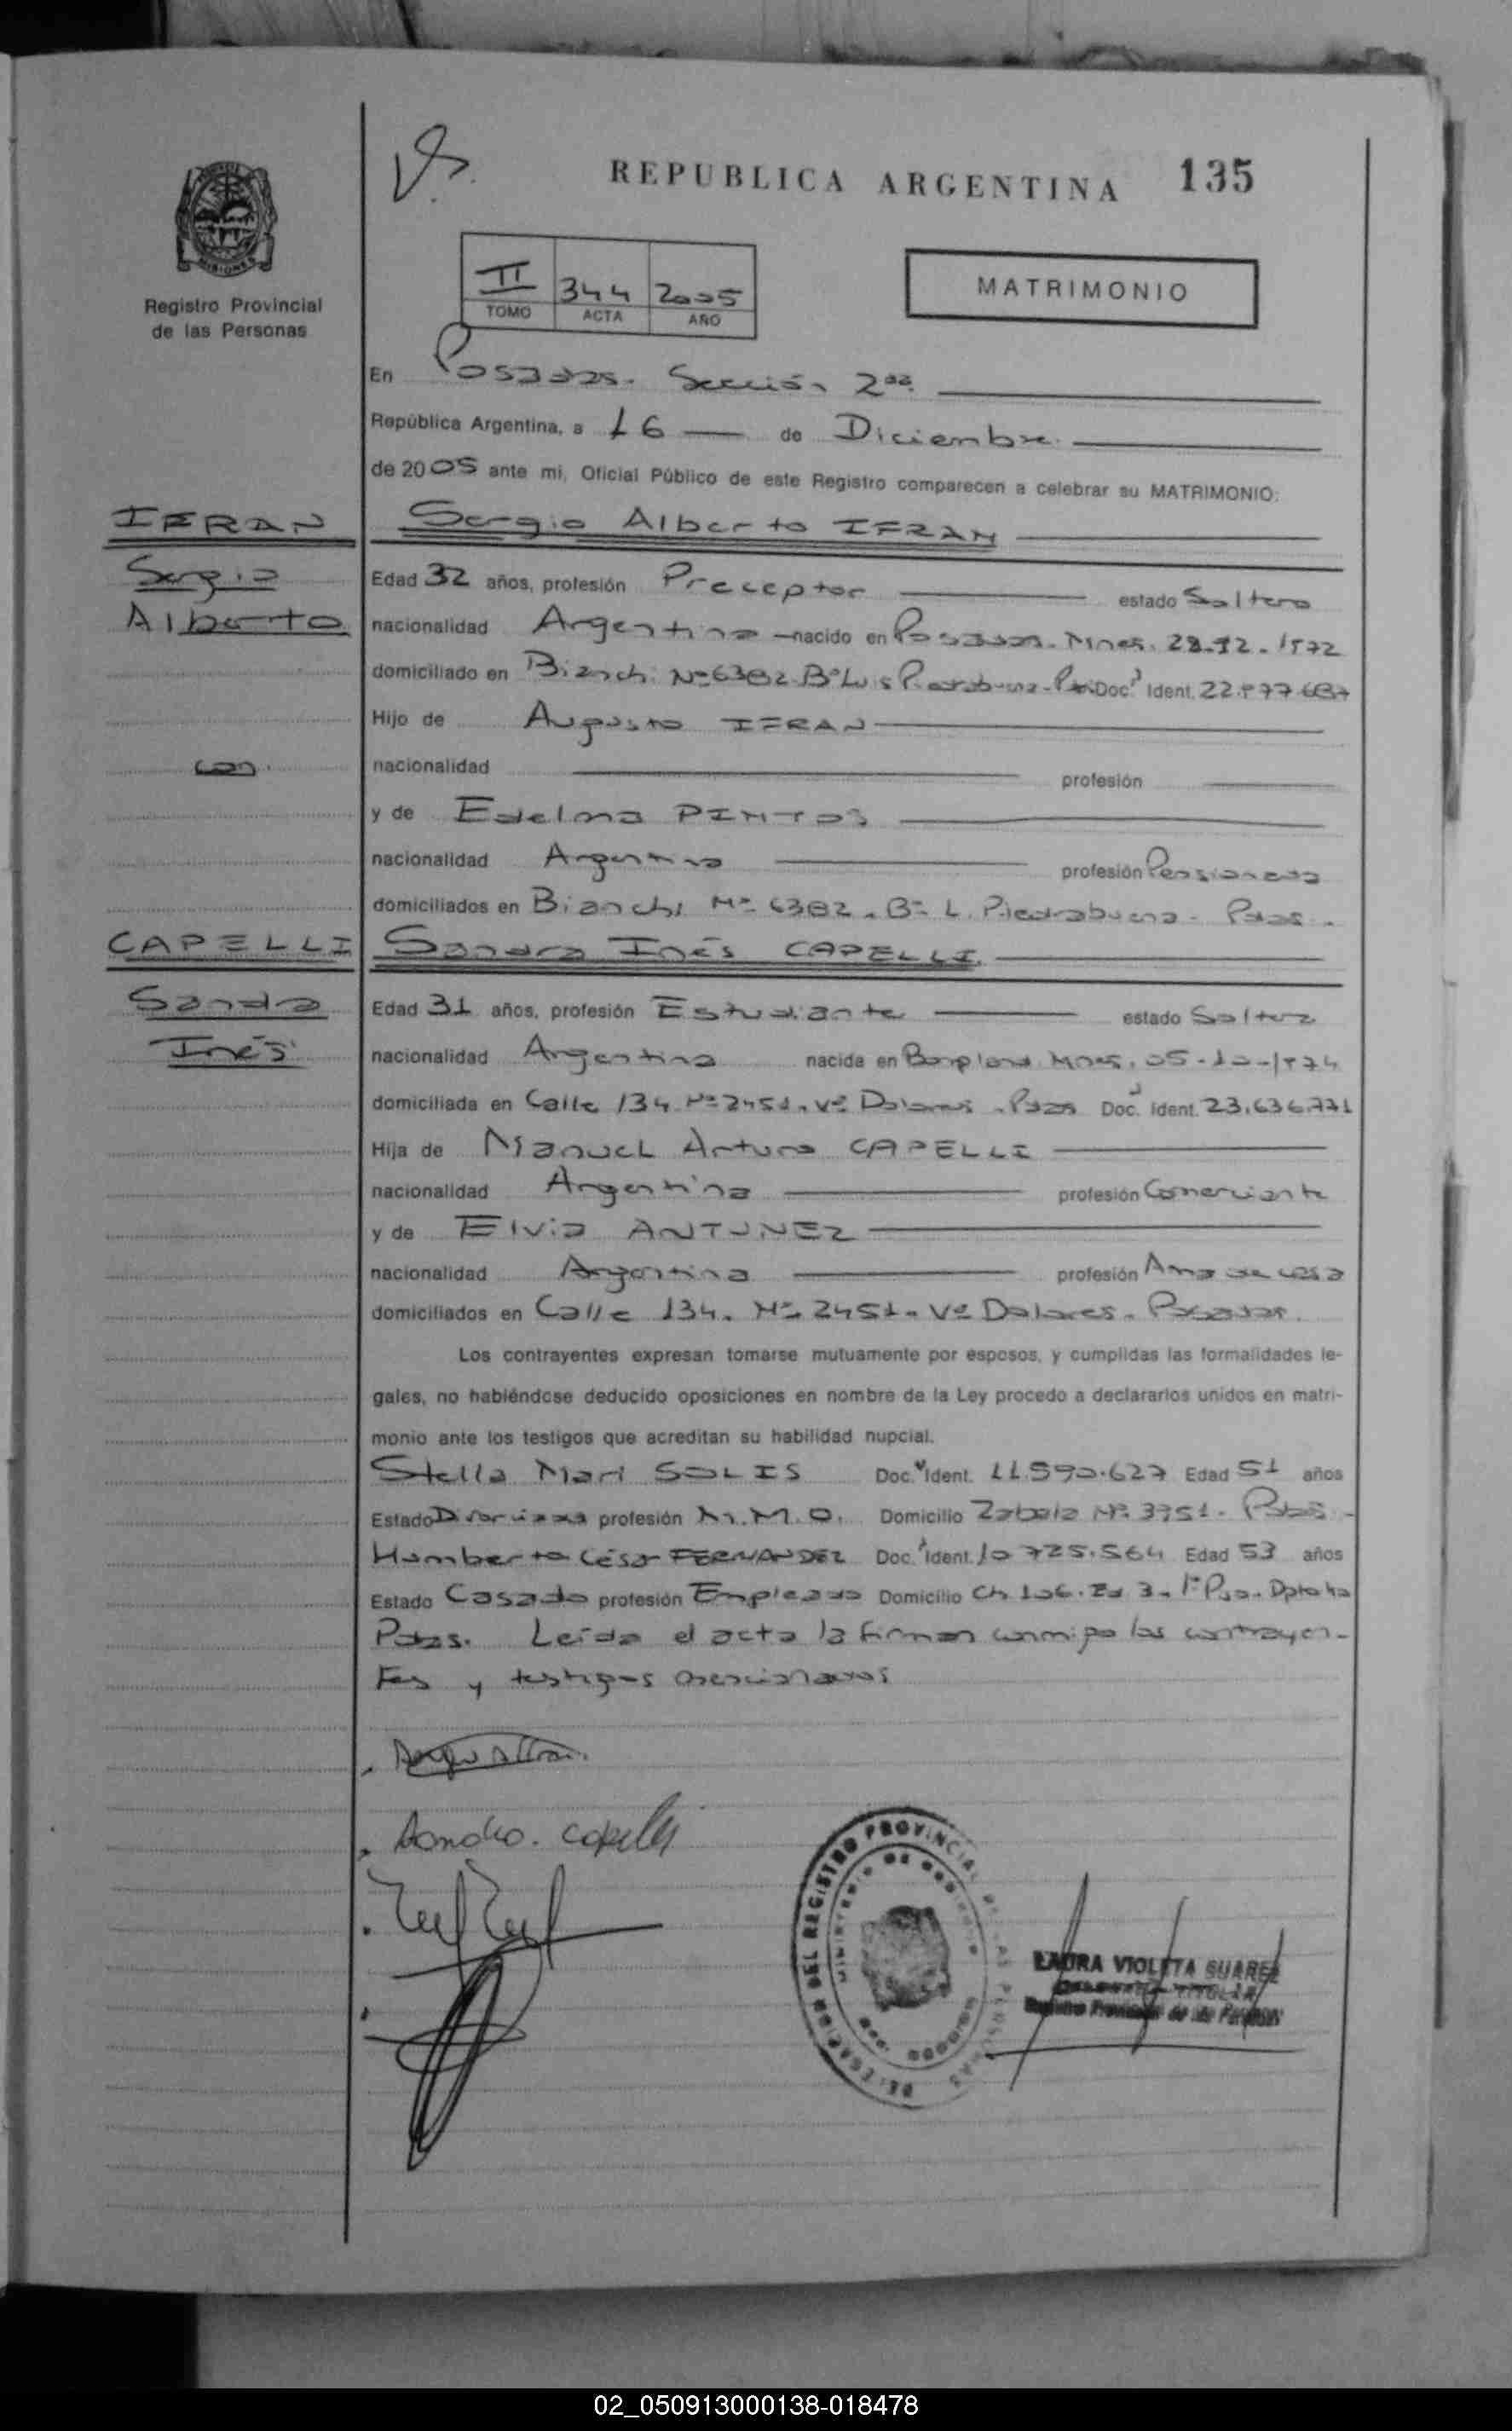 REPUBLICA ARGENTINA 135
MISIONES
Registro Provincial
de las Personas
II 344 2005
TOMO ACTA AÑO
MATRIMONIO
En Posadas. Sección 2da.
República Argentina, a 16 de Diciembre.
de 2005 ante mi, Oficial Público de este Registro comparecen a celebrar su MATRIMONIO:
IFRAN Sergio Alberto IFRAN
Sergio Edad 32 años, profesión Preceptor estado Soltero
Alberto nacionalidad Argentina nacido en Posadas. Mnes. 28-12-1972
domiciliado en Bianchi Nº 6382 Bº Luis Piedrabuena - Doc. Ident. 22.977.687
Hijo de Augusto IFRAN
con nacionalidad profesión
y de Edelma PINTOS
nacionalidad Argentina profesión Pensionada
domiciliados en Bianchi Nº 6382. Bº L. Piedrabuena - Pdas.
CAPELLI Sandra Inés CAPELLI.
Sandra Edad 31 años, profesión Estudiante estado Soltera
Inés nacionalidad Argentina nacida en Bonpland Mnes. 05-10-1974
domiciliada en Calle 134. Nº 2451. Vª Dolores. Pdas Doc. Ident. 23.636.771
Hija de Manuel Arturo CAPELLI
nacionalidad Argentina profesión Comerciante
y de Elvia ANTUNEZ
nacionalidad Argentina profesión Ama de casa
domiciliados en Calle 134. Nº 2451. Vª Dolores. Posadas.
Los contrayentes expresan tomarse mutuamente por esposos, y cumplidas las formalidades le-
gales, no habiéndose deducido oposiciones en nombre de la Ley procedo a declararlos unidos en matri-
monio ante los testigos que acreditan su habilidad nupcial.
Stella Mari SOLIS Doc. Ident. 11.590.627 Edad 51 años
Estado Divorciada profesión M.M.O. Domicilio Zabala Nº 3751. Pdas.
Humberto César FERNANDEZ Doc. Ident. 10.725.564 Edad 53 años
Estado Casado profesión Empleado Domicilio Ch 106. Ed 3. 1º Piso. Dpto
Pdas. Leída el acta la firman conmigo los contrayen-
tes y testigos mencionados
Sandra. Capelli
DELEGACION DEL REGISTRO PROVINCIAL DE LAS PERSONAS
MINISTERIO DE GOBIERNO
LAURA VIOLETA SUAREZ
TITULAR
Registro Provincial de las Personas
02_050913000138-018478